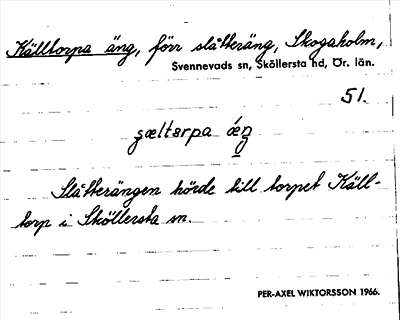 Källtorpa äng, förr slåtteräng, Skogaholm,
Svennevads sn, Sköllersta hd, Ör. län.
51.
Slåtterängen hörde till torpet Käll-
torp i Sköllersta sn.
PER-AXEL WIKTORSSON 1966.